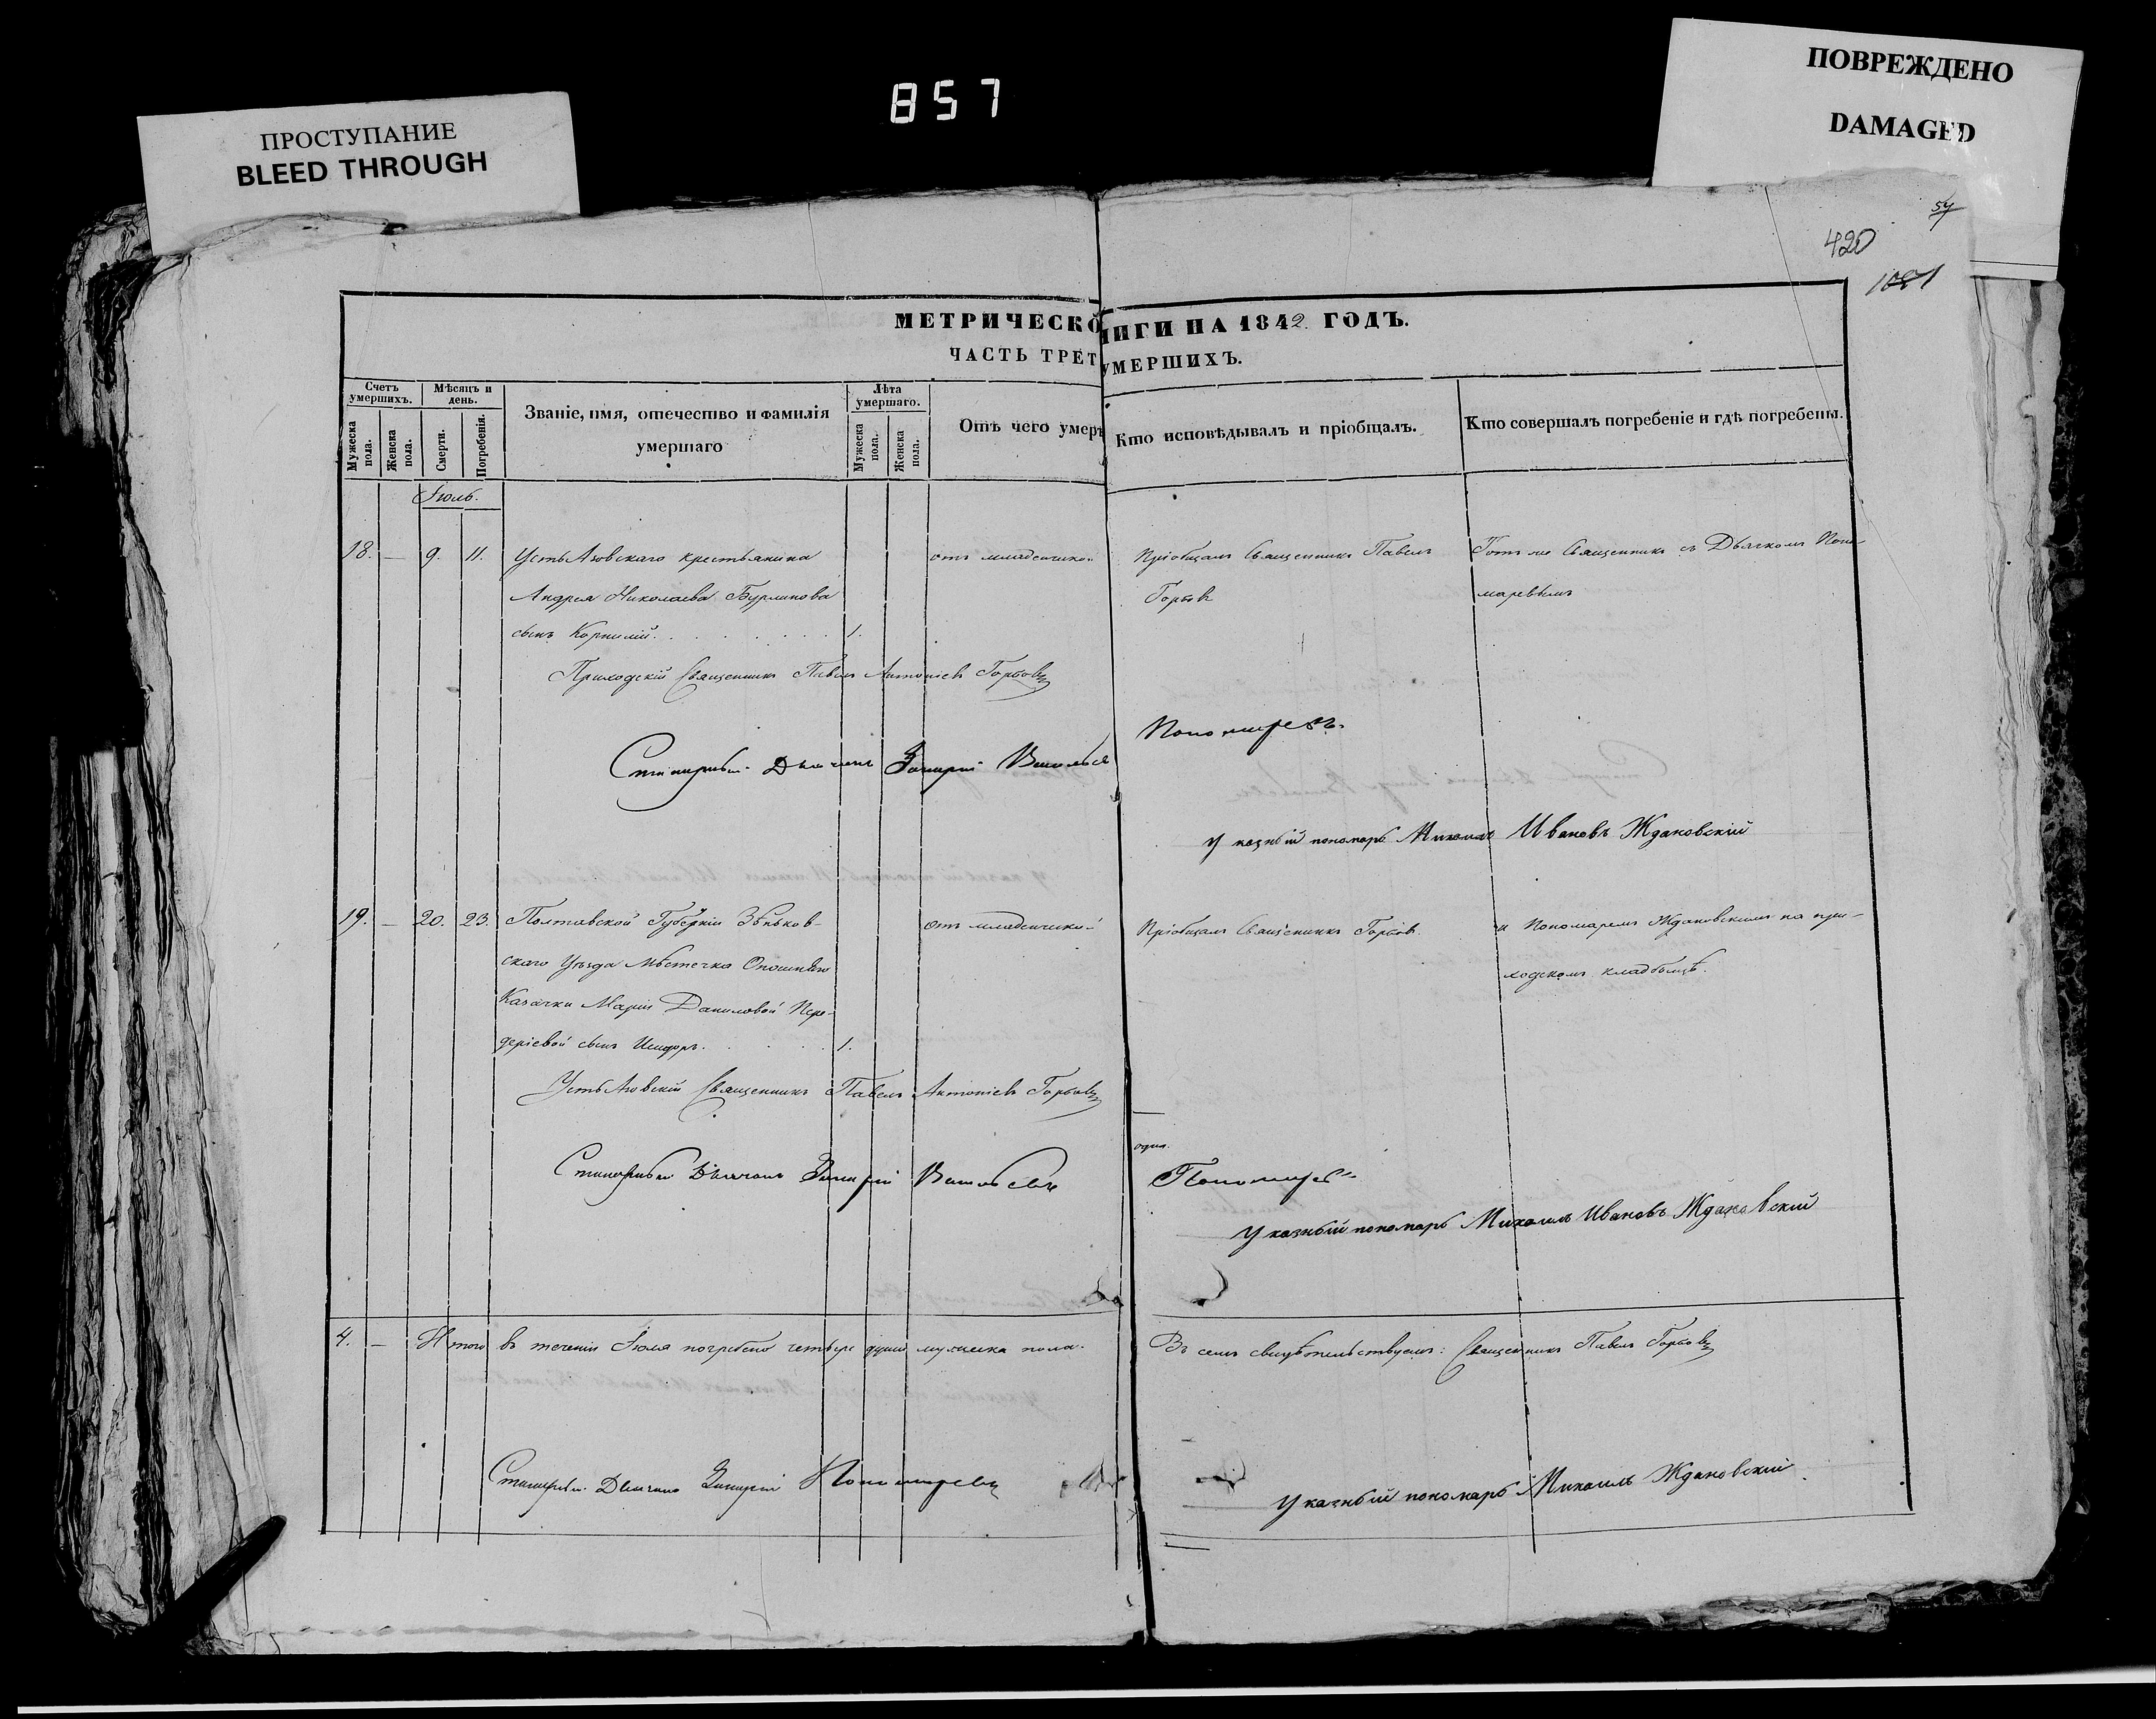 857
ПРОСТУПАНИЕ
BLEED THROUGH
ПОВРЕЖДЕНО
DAMAGED
54
420
1081
МЕТРИЧЕСКО НИГИ НА 1842. ГОДЪ.
ЧАСТЬ ТРЕТ УМЕРШИХЪ.
Счетъ умершихъ.
Мужеска пола.
Женска пола.
Мѣсяцъ и день.
Смерти.
Погребенія.
Званіе, имя, отечество и фамилія
умершаго
Лѣта умершаго.
Мужеска пола.
Женска пола.
Отъ чего умеръ
Кто исповѣдывалъ и пріобщалъ.
Кто совершалъ погребеніе и гдѣ погребены.
Іюль.
18. — 9. 11. Усть Азовскаго крестьянина
Андрея Николаева Бурлинова
сынъ Корнилій. 1.
отъ младенческо-
Пріобщалъ Священникъ Павелъ
Горбовъ
Тотъ же Священникъ съ Дьячкомъ Поно-
маревымъ
Приходскій Священникъ Павелъ Антоніевъ Горбовъ
Дьячекъ Захарій Васильевъ Пономаревъ.
Указный пономарь Михаилъ Ивановъ Ждановскій
19. — 20. 23. Полтавской Губерніи Зѣньков-
скаго Уѣзда Мѣстечка Опошняго
Казачки Маріи Даниловой Пере-
деріевой сынъ Исидоръ. 1.
отъ младенческо-
Пріобщалъ Священникъ Горбовъ
и Пономаремъ Ждановскимъ на при-
ходскомъ кладбищѣ.
Усть Азовскій Священникъ Павелъ Антоніевъ Горбовъ
Дьячекъ Захарій Васильевъ Пономаревъ
Указный пономарь Михаилъ Ивановъ Ждановскій
4. — Итого въ теченіи Іюля погребено четыре души мужеска пола.
Въ семъ свидѣтельствуемъ: Священникъ Павелъ Горбовъ
Дьячекъ Захарій Пономаревъ
Указный пономарь Михаилъ Ждановскій